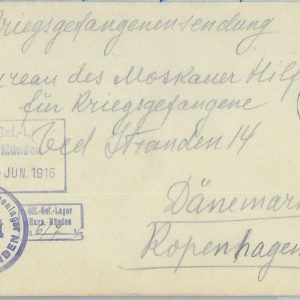 Kriegsgefangenensendung
Bureau des Moskauer Hilf
für Kriegsgefangene
Ved Stranden 14
Dänemark
Kopenhagen
Gef.-L.
Münden
JUN. 1916
Off.-Gef.-Lager
Hann.-Münden